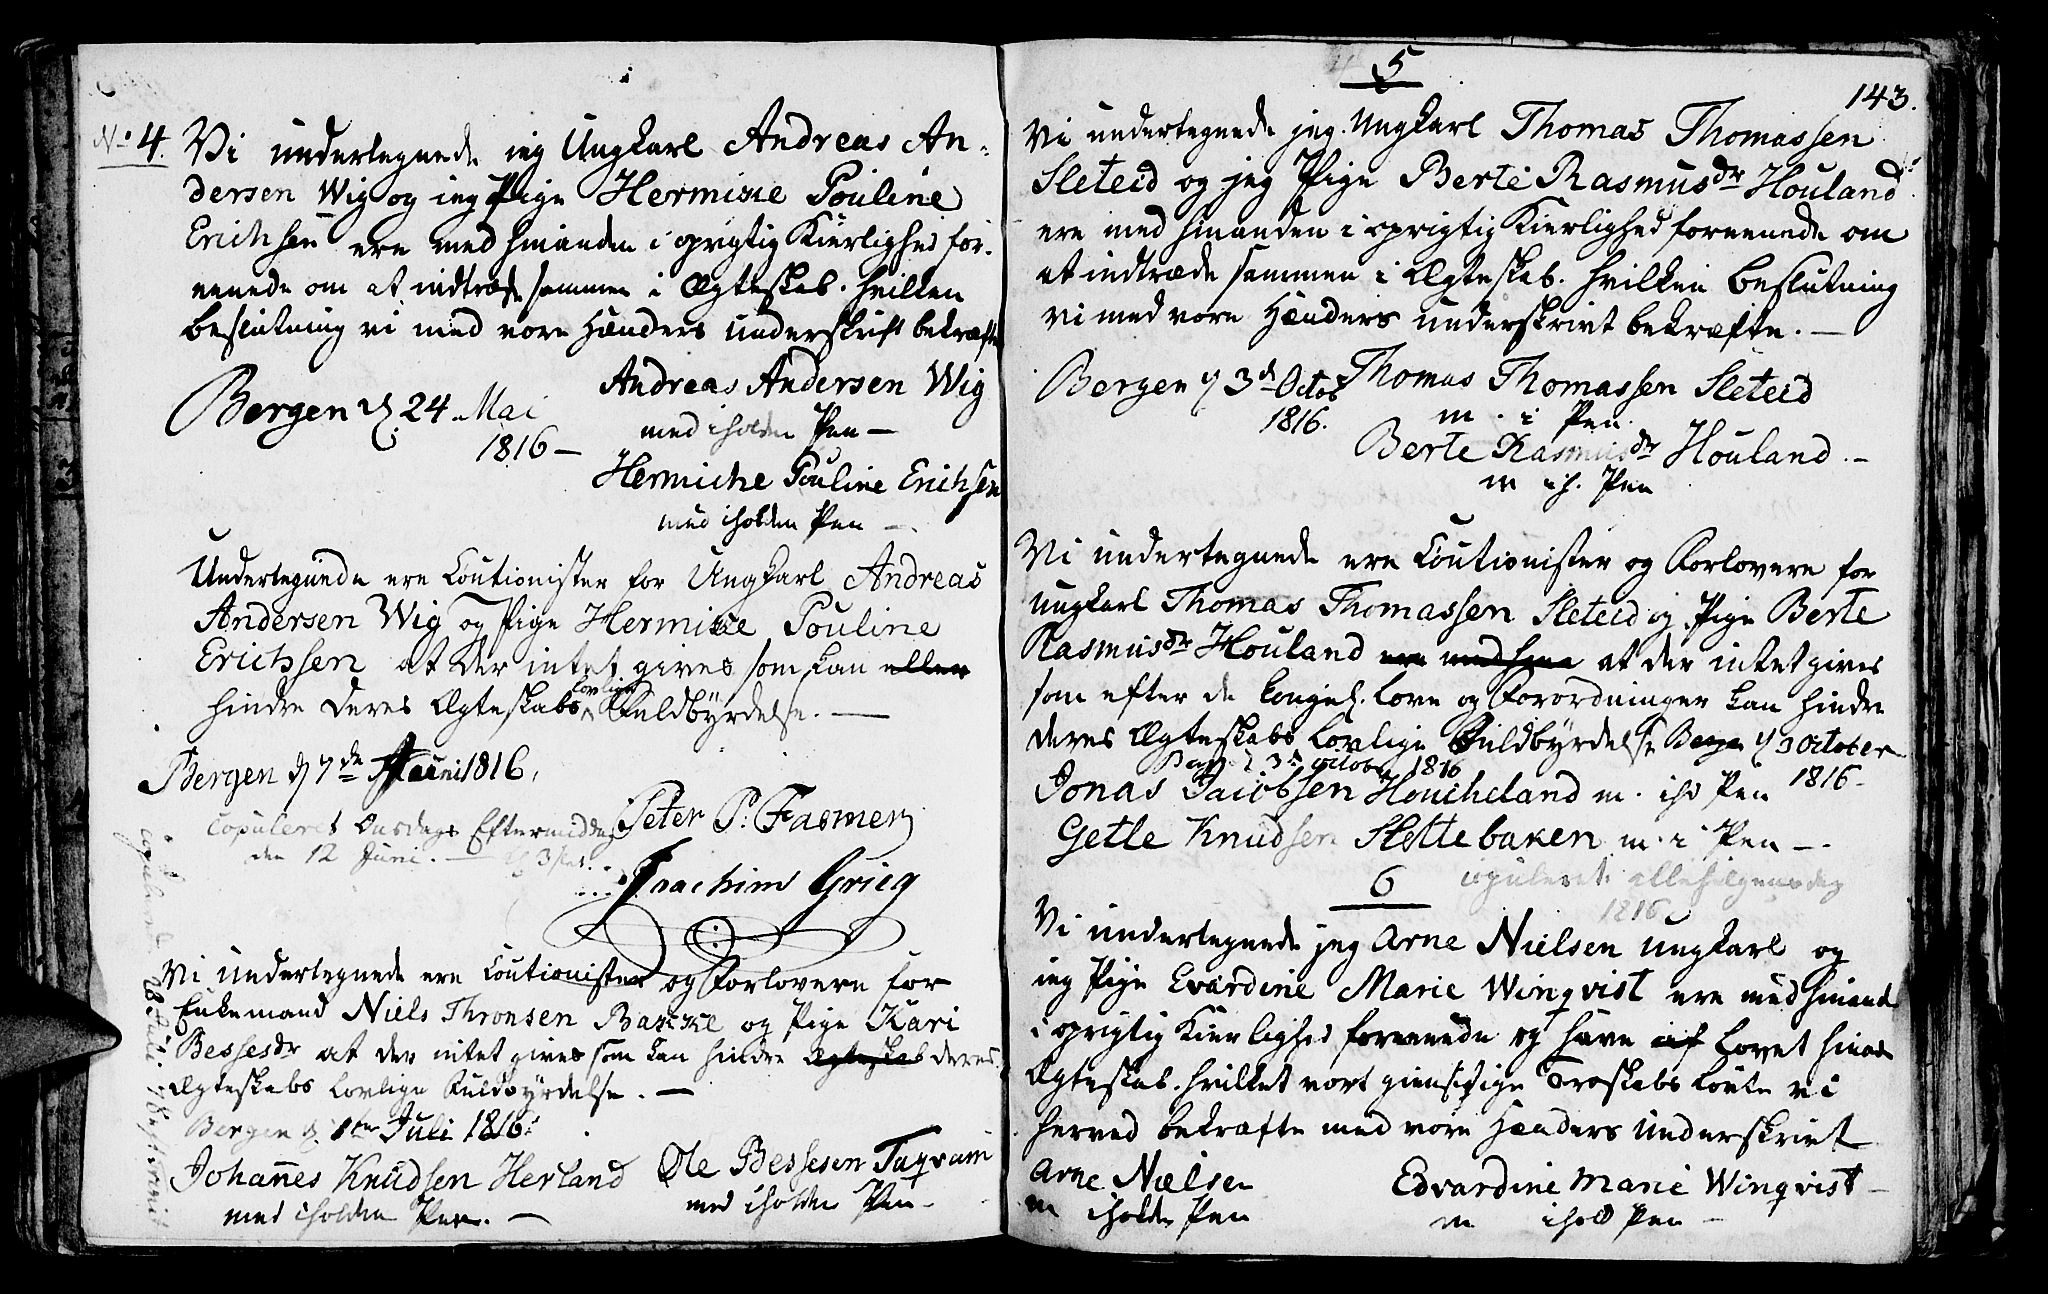 No 4. Vi undertegnede ieg Ungkarl Andreas An-
dersen Wig og ieg Pige Hermiche Pouline
Erichsen ere med hinanden i oprigtig Kierlighed for-
eenede om at indtræde sammen i Ægteskab. hvilken
beslutning vi med vore Hænders underskrift bekræfte
Andreas Andersen Wig
Bergen d. 24 Mai
med iholden Pen —
1816 —
Hermiche Pouline Erichsen
med iholden Pen —
Undertegnede ere Coutionister for Ungkarl Andreas
Andersen Wig og Pige Hermiche Pouline
Erichsen at der intet gives som kan eller
hindre deres Ægteskabs lovlige Fuldbyrdelse. —
Bergen d 7de Juni 1816.
Peter P: Fasmer
Copuleret Onsdags Eftermiddag
den 12 Juni. — Kl 3 slet.
Joachim Grieg
Vi undertegnede ere Coutionister og Forlovere for
Enkemand Niels Thronsen Backe og Pige Kari
Bessesdr at der intet gives som kan hindre Ægteskab deres
Ægteskabs lovlige Fuldbyrdelse. —
Bergen d. 1ten Juli 1816.
Johannes Knudsen Herland
med iholden Pen. —
Ole Bessesen Taqvam
med iholden Pen -
copuleret 28 Juli
5
143.
Vi undertegnede jeg Ungkarl Thomas Thomassen
Sleteid og jeg Pige Berte Rasmusdr Houland
ere med hinanden i oprigtig Kierlighed foreenede om
at indtræde sammen i Ægteskab. hvilken beslutning
vi med vore Hænders underskrivt bekræfte. —
Bergen d 3d Octob
1816.
Thomas Thomassen Sleteid
m. i Pen
Berte Rasmusdr Houland. -
m ih. Pen
Vi undertegnede ere Coutionister og Forlovere for
Ungkarl Thomas Thomassen Sleteid og Pige Berte
Rasmusdr Houland ere med hina at der intet gives
som efter de Kongel. Love og Forordninger kan hindre
deres Ægteskabs lovlige Fuldbyrdelse Bergen d 3 October
1816 -
Berg d 3d octobr 1816
Jonas Jacobsen Houcheland m. iho Pen
Getle Knudsen Slettebaken m. i Pen —.
6
copuleret allehelgensdag
1816
Vi undertegnede jeg Arne Nielsen Ungkarl og
ieg Pige Evardine Marie Winqvist ere med hinand
i oprigtig Kierlighed foreenede og have af Lovet hinan
Ægteskab. hvilket vort giensidige Troskabs Løvte vi
herved bekræfte med vore Hænders Underskrivt
Arne Nielsen
m iholde Pen
Edvardine Marie Winqvist -
m ihold Pen -